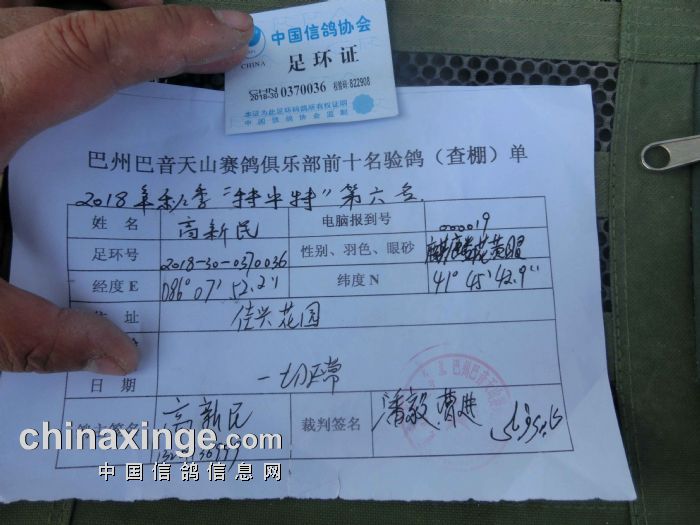 中国信鸽协会
CHINA
足环证
CHN
2018-30 0370036 校验码: 822908
本证为此足环鸽所有权证明
中国信鸽协会监制
巴州巴音天山赛鸽俱乐部前十名验鸽（查棚）单
2018年秋季“特半特”第六名
姓名 高新民 电脑报到号 000019
足环号 2018-30-0370036 性别、羽色、眼砂
经度E 086°07′52.2″ 纬度N 41°45′42.9″
住址 佳兴花园
日期 一切正常
签名 高新民 裁判签名 潘毅 曹进
chinaxinge.com
中国信鸽信息网